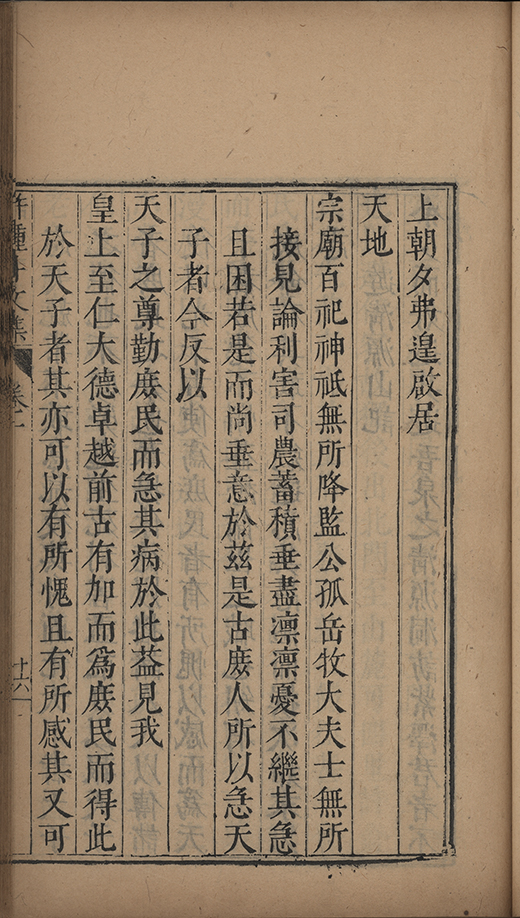 上朝夕弗遑啟居
天地
宗廟百祀神祗無所降監公孤岳牧大夫士無所
接見論利害司農蓄積垂盡凛凛憂不繼其急
且困若是而尚垂意於茲是古庻人所以急天
子者今反以
天子之尊勤庻民而急其病於此益見我
皇上至仁大德卓越前古有加而爲庻民而得此
於天子者其亦可以有所愧且有所感其又可
文集
卷十